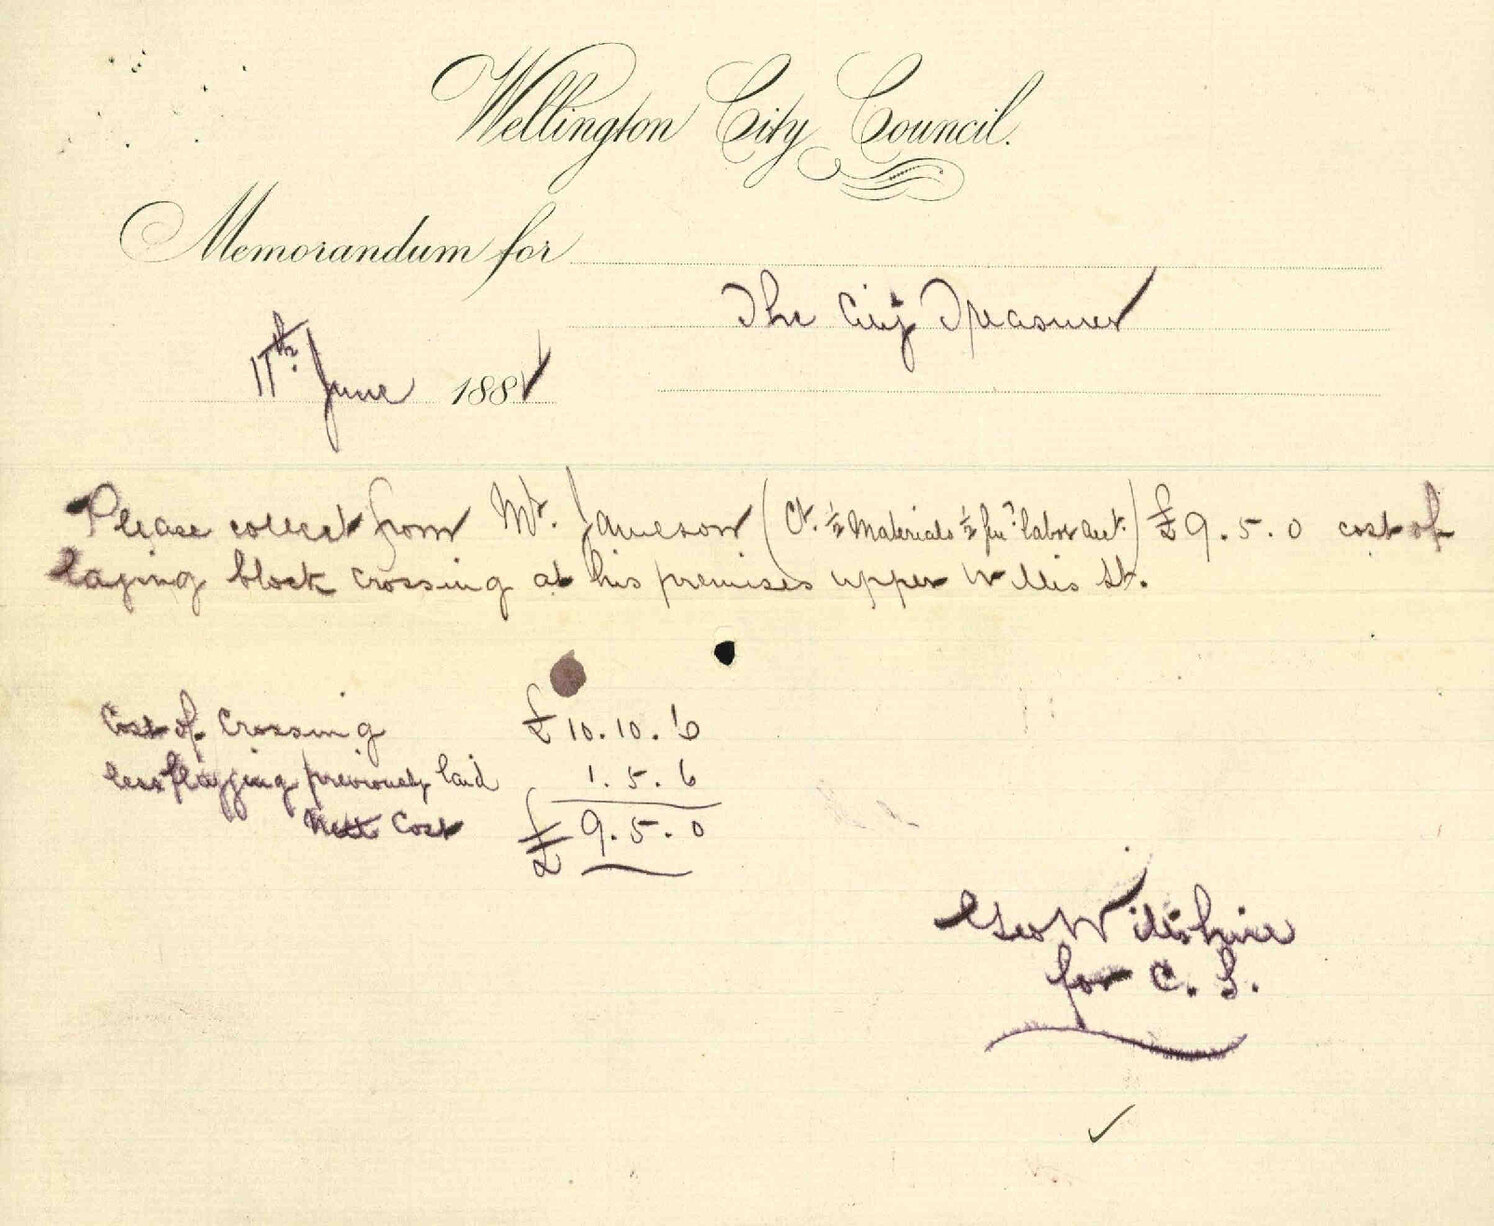 Wellington City Council.
Memorandum for
The City Treasurer
11th June 188
Please collect from Mr. Jameson (Cr. ½ Materials ½ labor acct.) £9.5.0 cost of
laying block crossing at his premises upper Willis St.
Cost of Crossing £10.10.6
less flagging previously laid 1.5.6
Nett Cost £9.5.0
Geo Wiltshire
for C. S.